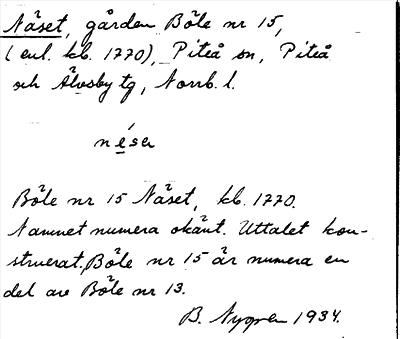 Näset, gården Böle nr 15,
(enl. kb. 1770), Piteå sn, Piteå
och Älvsby tg, Norrb. l.
néser
Böle nr 15 Näset, kb. 1770.
Namnet numera okänt. Uttalet kon-
struerat. Böle nr 15 är numera en
del av Böle nr 13.
B. Nygren 1934.